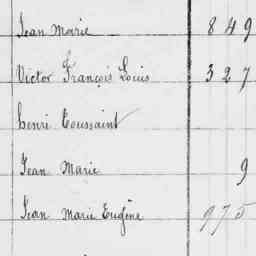 Jean Marie 849
Victor François Louis 327
henri Toussaint
Jean Marie 9
Jean Marie Eugène 975